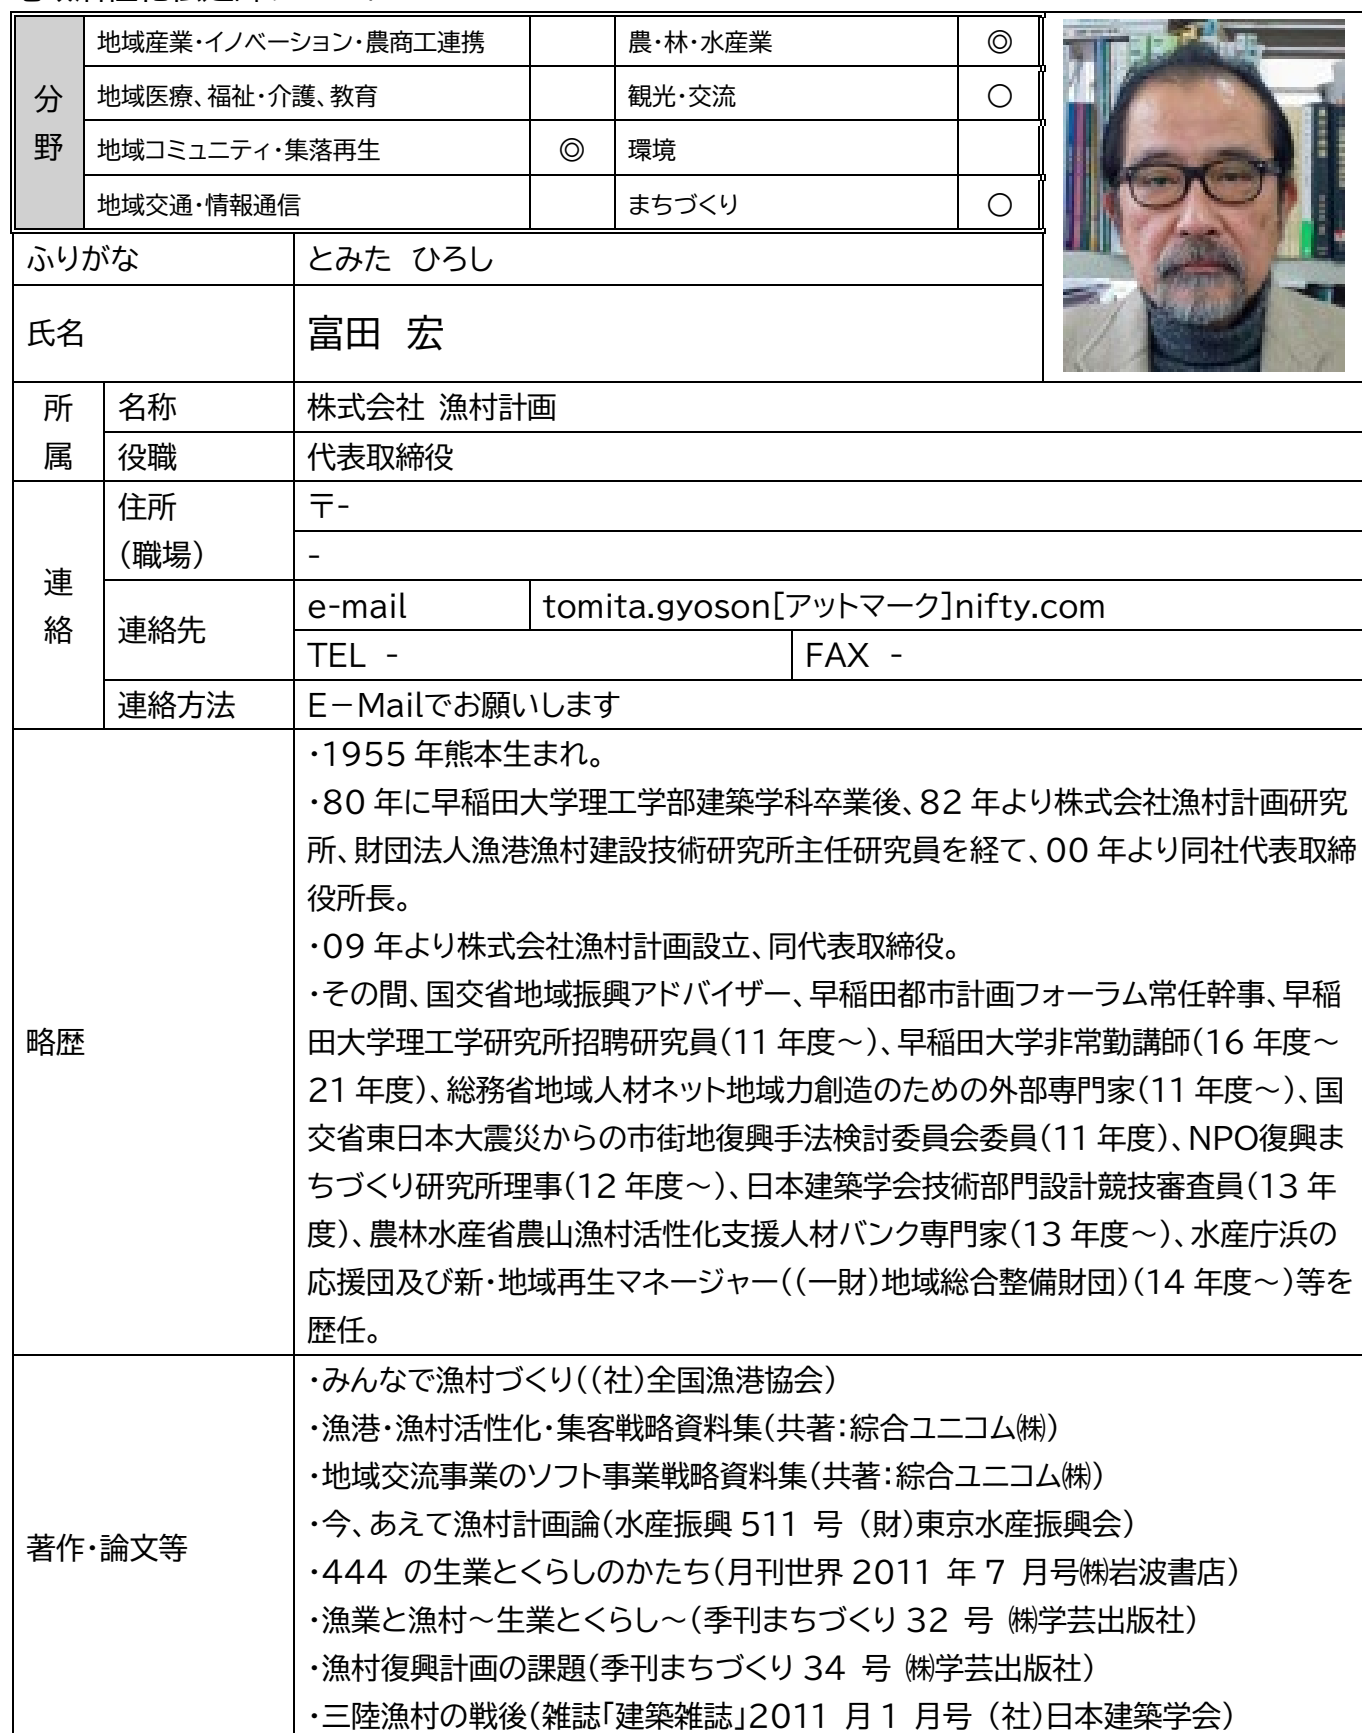 分野
地域産業・イノベーション・農商工連携 農・林・水産業 ◎
地域医療、福祉・介護、教育 観光・交流 ○
地域コミュニティ・集落再生 ◎ 環境
地域交通・情報通信 まちづくり ○
ふりがな とみた ひろし
氏名 富田 宏
所属 名称 株式会社 漁村計画
役職 代表取締役
連絡 住所 〒-
（職場） -
連絡先 e-mail tomita.gyoson[アットマーク]nifty.com
TEL - FAX -
連絡方法 E－Mailでお願いします
略歴
・1955年熊本生まれ。
・80年に早稲田大学理工学部建築学科卒業後、82年より株式会社漁村計画研究
所、財団法人漁港漁村建設技術研究所主任研究員を経て、00年より同社代表取締
役所長。
・09年より株式会社漁村計画設立、同代表取締役。
・その間、国交省地域振興アドバイザー、早稲田都市計画フォーラム常任幹事、早稲
田大学理工学研究所招聘研究員（11年度～）、早稲田大学非常勤講師（16年度～
21年度）、総務省地域人材ネット地域力創造のための外部専門家（11年度～）、国
交省東日本大震災からの市街地復興手法検討委員会委員（11年度）、NPO復興ま
ちづくり研究所理事（12年度～）、日本建築学会技術部門設計競技審査員（13年
度）、農林水産省農山漁村活性化支援人材バンク専門家（13年度～）、水産庁浜の
応援団及び新・地域再生マネージャー（（一財）地域総合整備財団）（14年度～）等を
歴任。
著作・論文等
・みんなで漁村づくり（（社）全国漁港協会）
・漁港・漁村活性化・集客戦略資料集（共著：綜合ユニコム㈱）
・地域交流事業のソフト事業戦略資料集（共著：綜合ユニコム㈱）
・今、あえて漁村計画論（水産振興511 号 （財）東京水産振興会）
・444 の生業とくらしのかたち（月刊世界2011 年7 月号㈱岩波書店）
・漁業と漁村～生業とくらし～（季刊まちづくり32 号 ㈱学芸出版社）
・漁村復興計画の課題（季刊まちづくり34 号 ㈱学芸出版社）
・三陸漁村の戦後（雑誌「建築雑誌」2011 月1 月号 （社）日本建築学会）